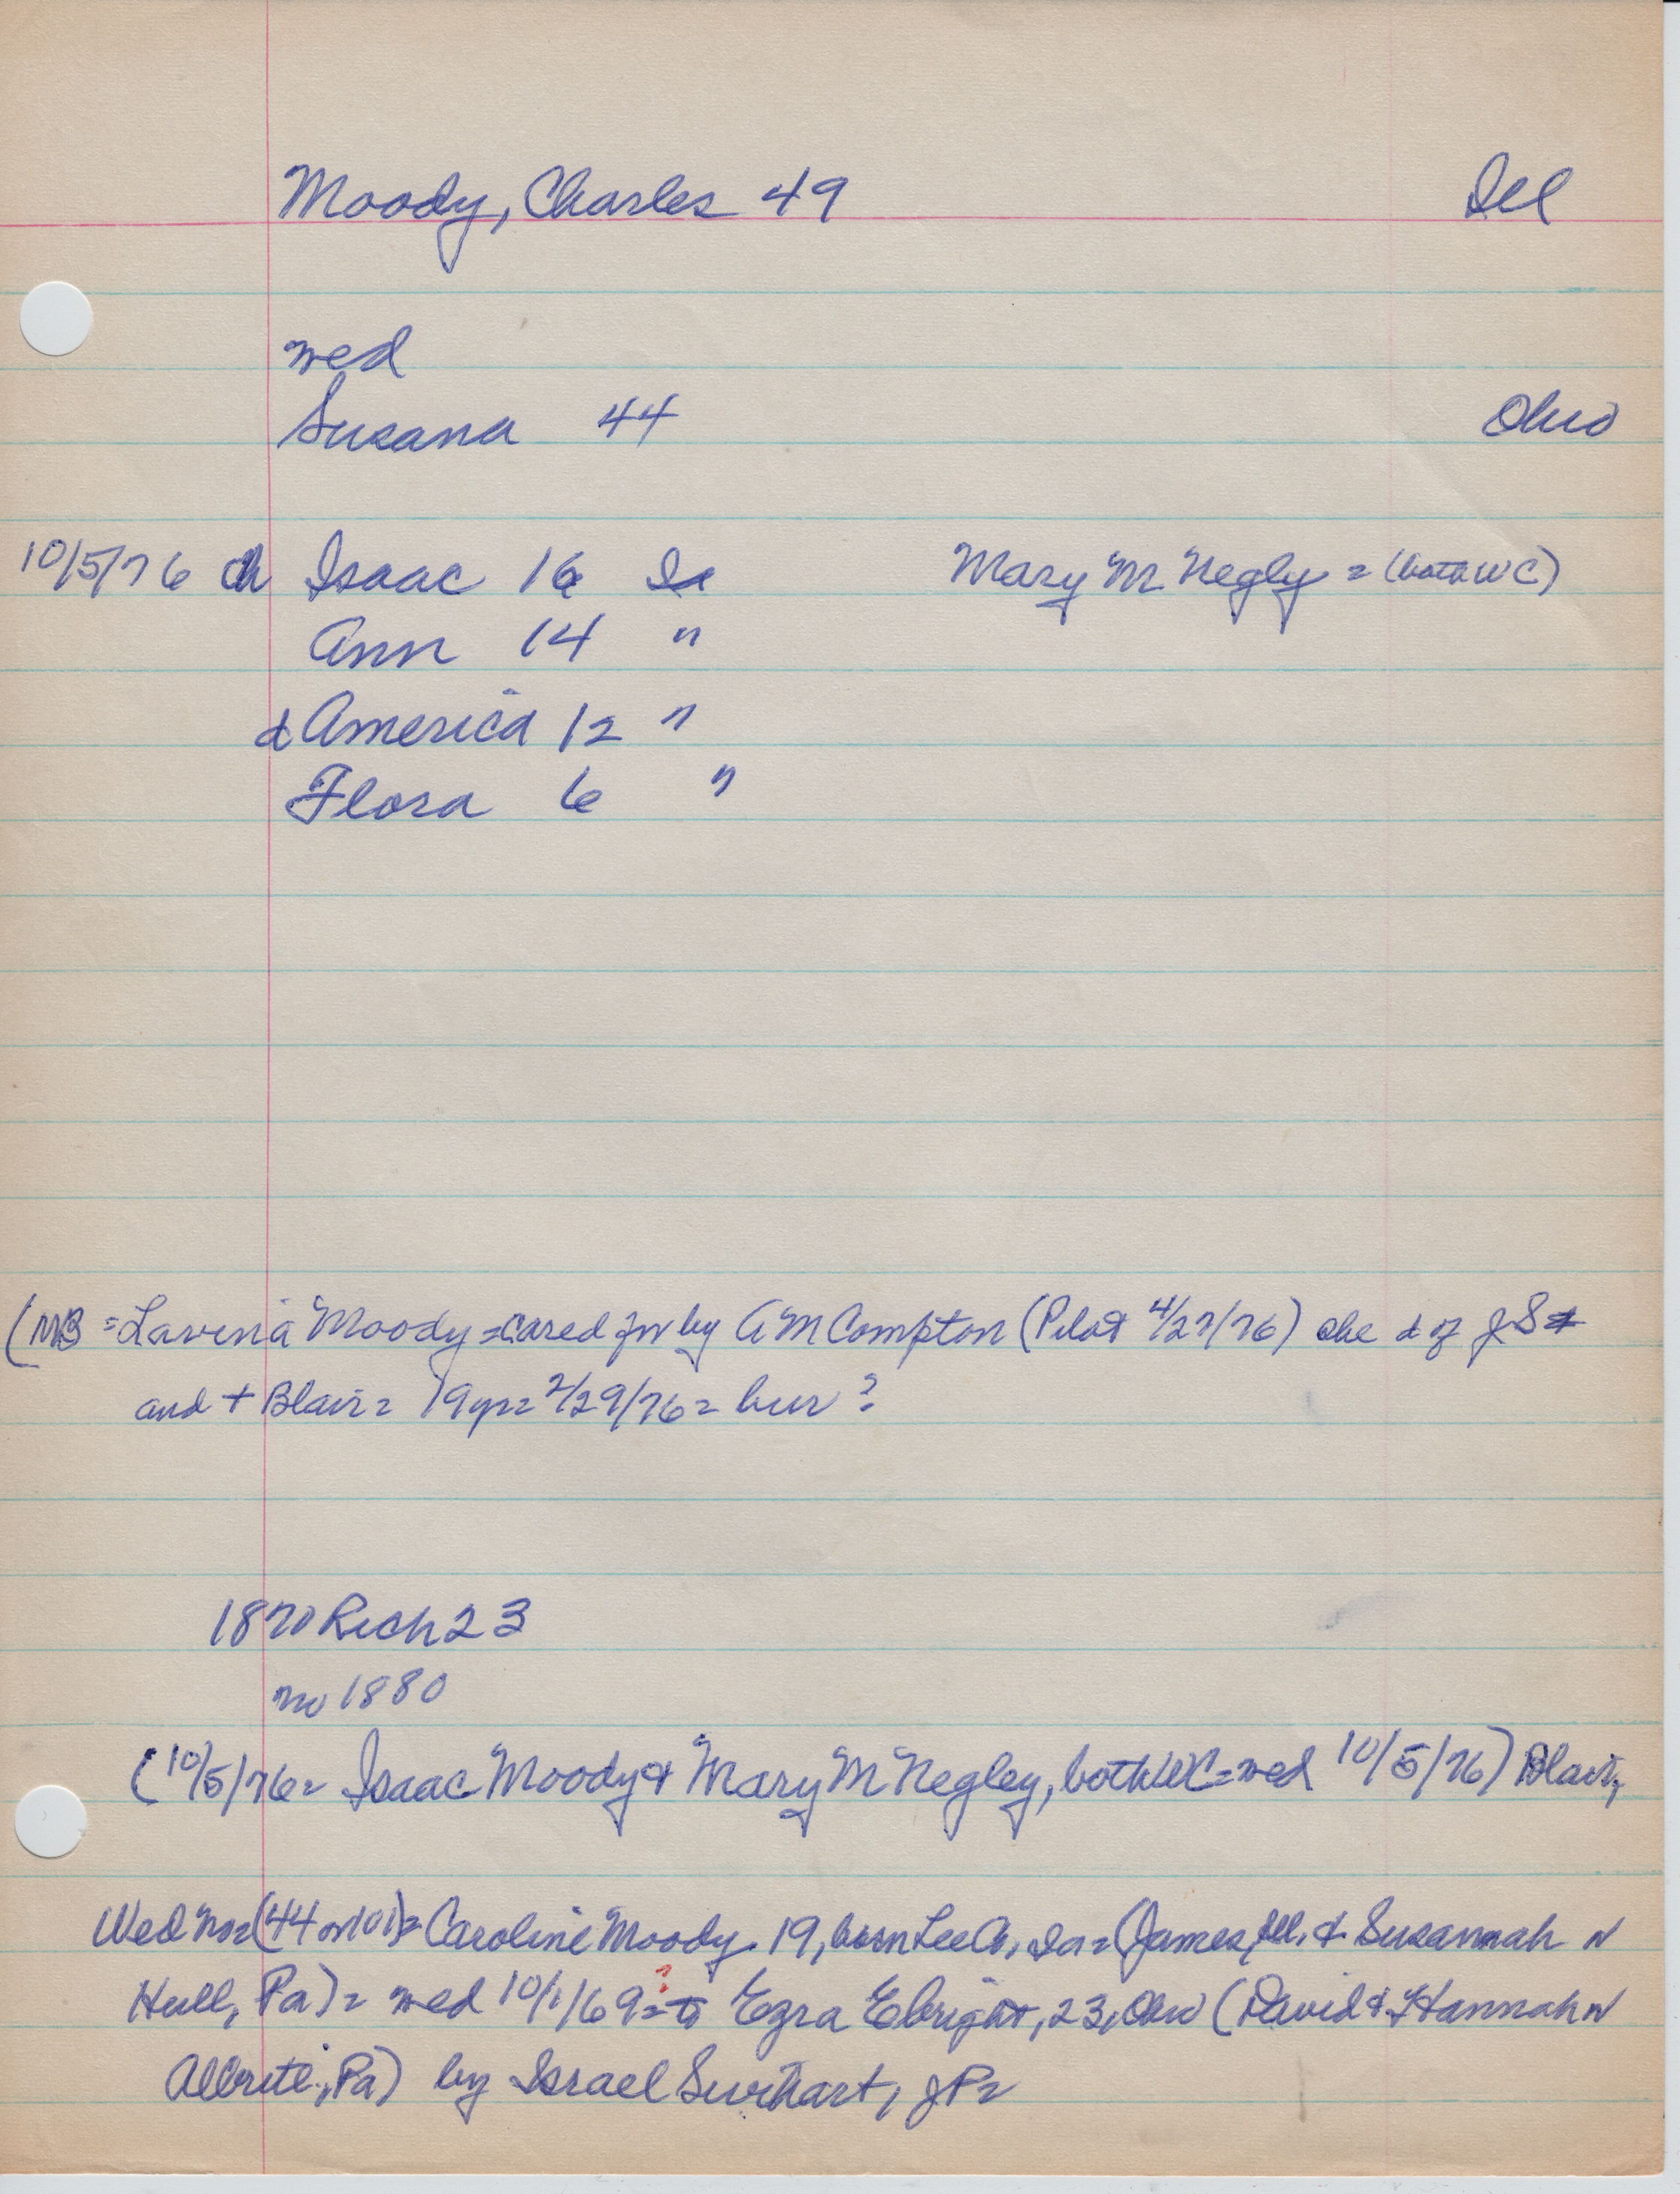 Moody, Charles 49 Ill
wed
Susana 44 Ohio
10/5/76 ch Isaac 16 Ia Mary M Negly = (both WC)
Ann 14 "
d America 12 "
Flora 6 "
(NB = Lavina Moody = cared for by A M Compton (Pilot 4/27/76) she d of J S
and + Blair = 19yr = 2/29/76 = bur ?
1870 Rich 23
no 1880
(10/5/76 = Isaac Moody & Mary M Negley, both WC = wed 10/5/76) Blair,
Wed No = (44 or 101) = Caroline Moody 19, born Lee Co, Ia = (James, Ill. & Susannah N
Hull, Pa) = wed 10/1/69 ? = to Ezra Ebright, 23, Ohio (David & Hannah N
Albrite, Pa) by Israel Swihart, JP =